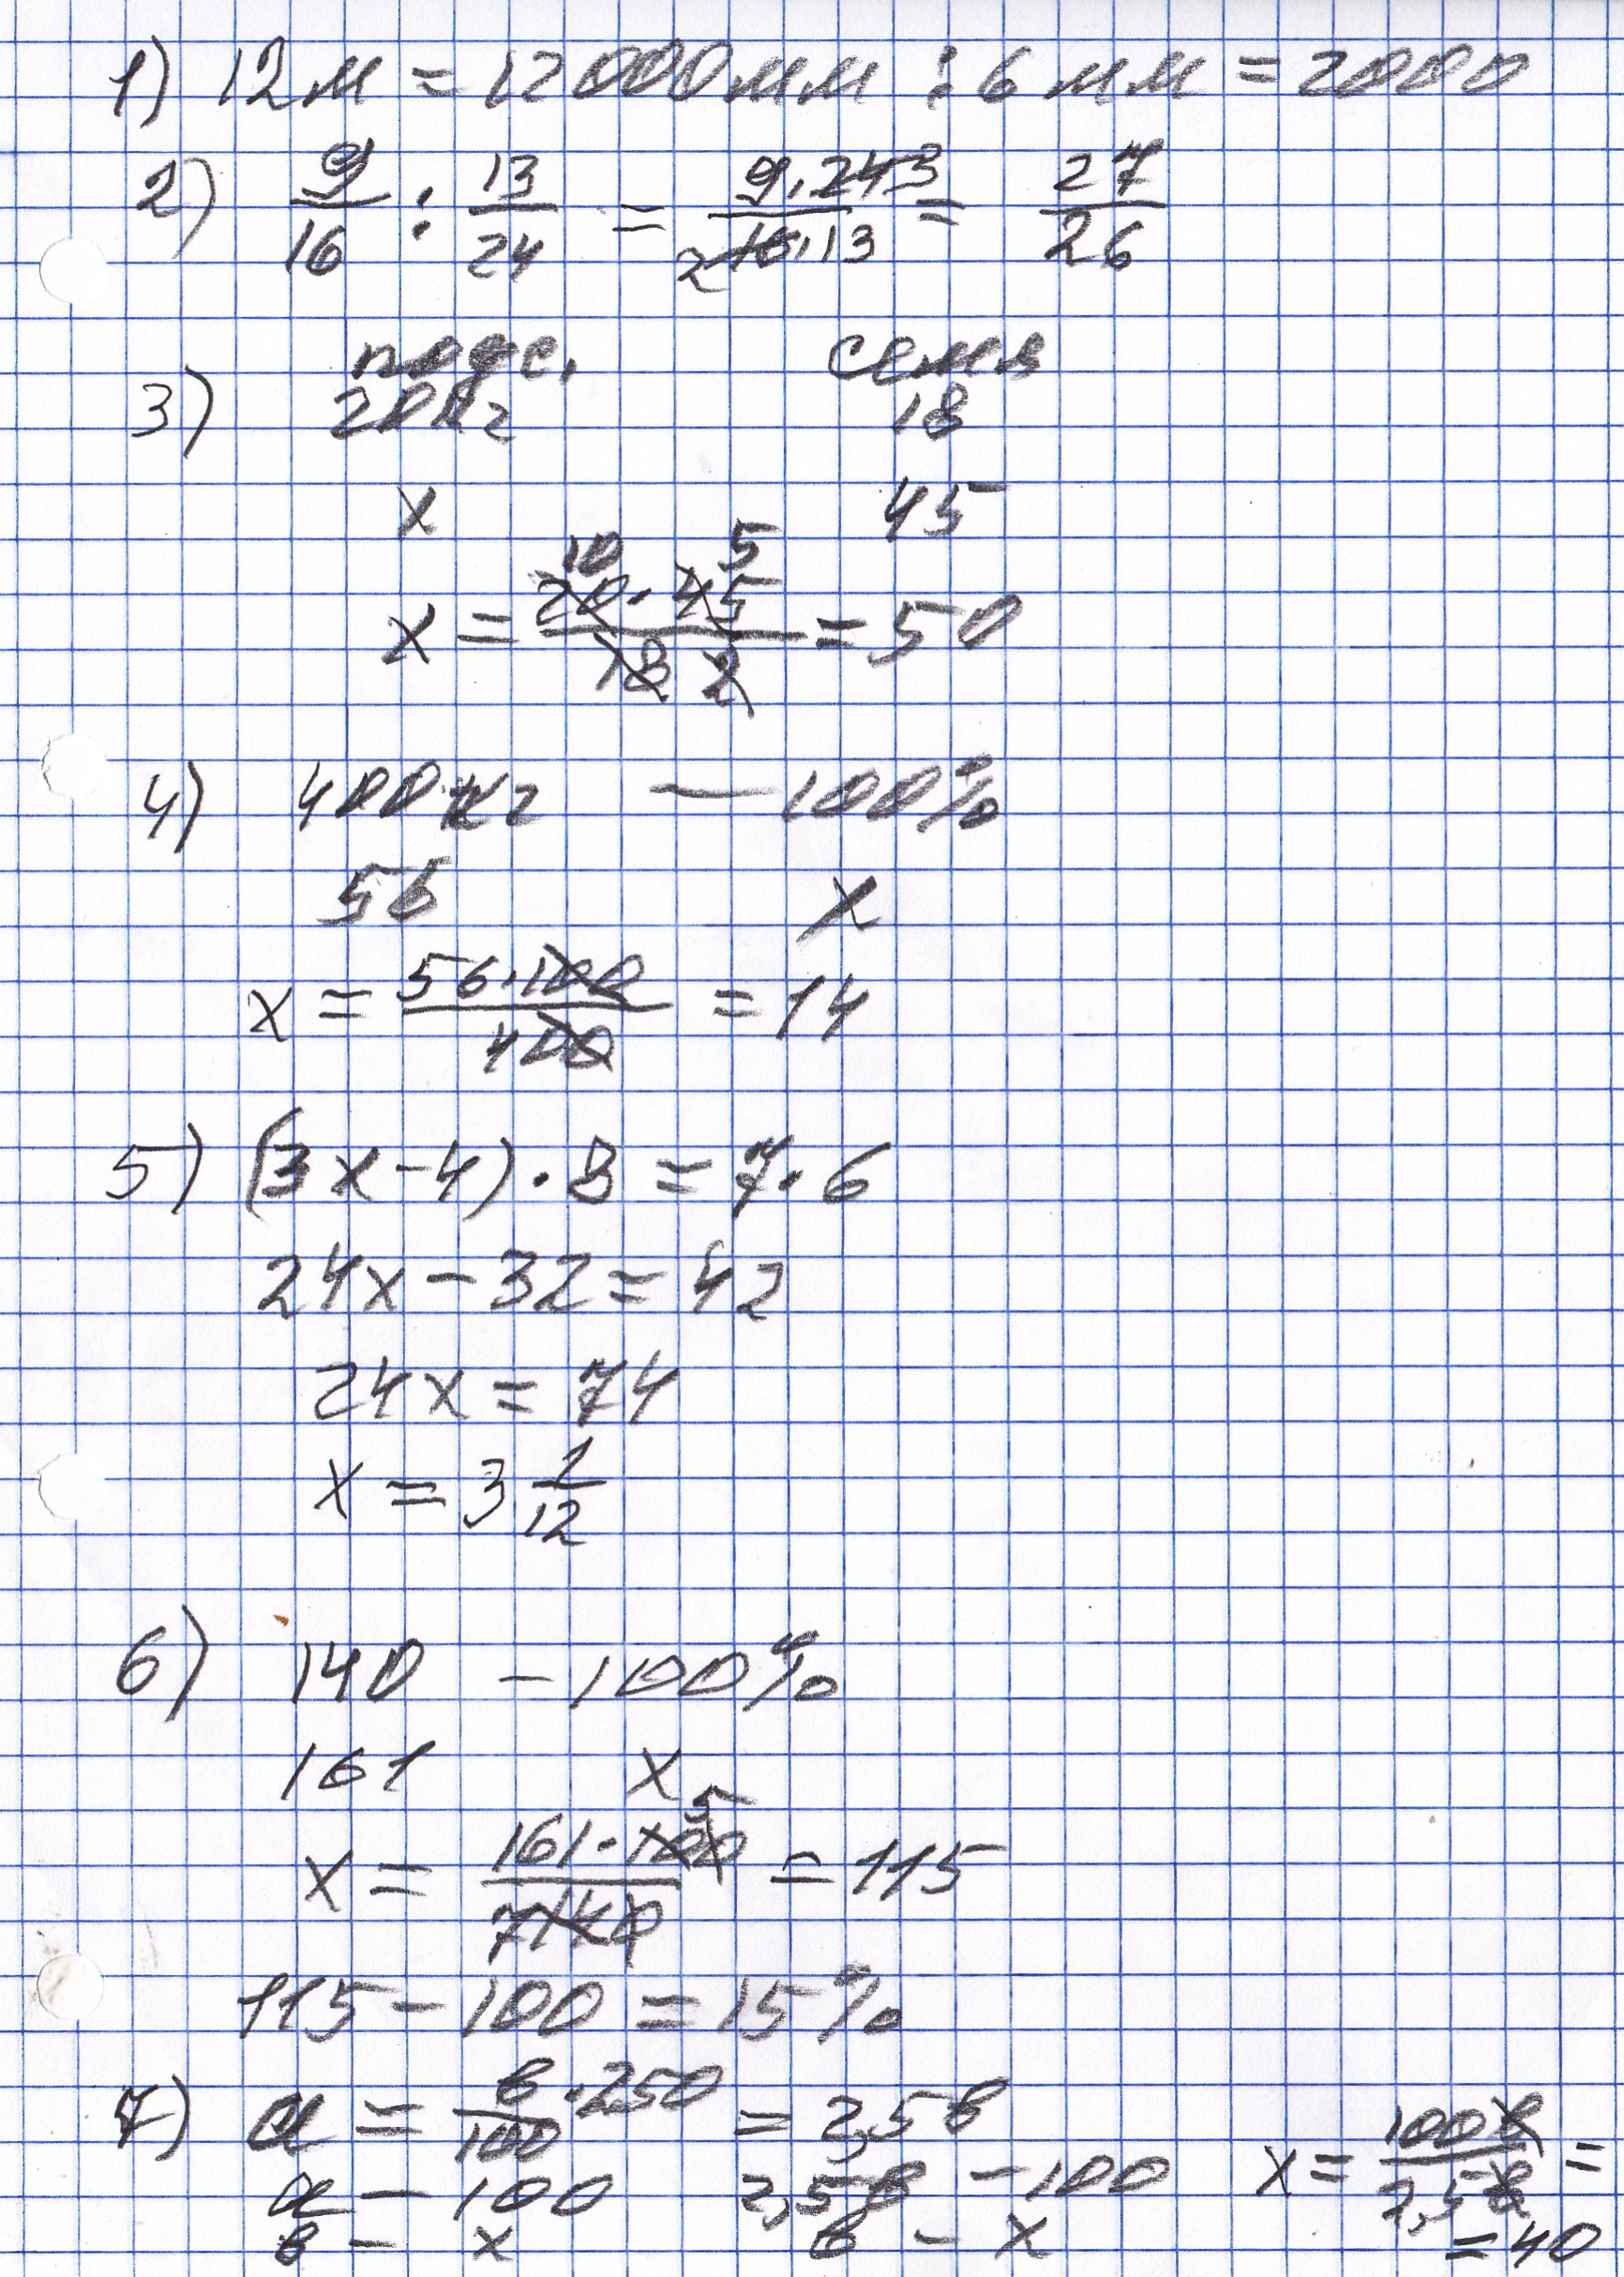 1) 12 м = 12000 мм : 6 мм = 2000
2) 9/16 : 13/24 = 9·24 3/2 16·13 = 27/26
3) подс. семя
20 кг 18
x 45
10 5
x = 20·45/18 2 = 50
4) 400 кг — 100%
56 x
x = 56·100/400 = 14
5) (3x-4)·8 = 7·6
24x - 32 = 42
24x = 74
x = 3 1/12
6) 140 - 100%
161 x
5
x = 161·100/7 140 = 115
115 - 100 = 15%
7) a = в/100 ·250 = 2,5в
a - 100 2,5в - 100 x = 100в/2,5в =
в - x в - x = 40